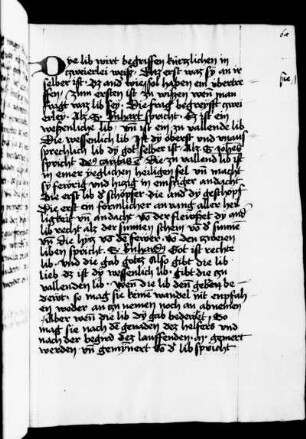 Die lib wirt begriffen kürtzlichen in
zweierlei weiß. Daz erst waz sy an ir
selber ist. Dz and wie sol haben ein übertre
ffen / zum ersten ist zu wissen wen man
fragt waz lib sey. Die frag begreifft zwei
erley. Alz S. Bnhart spricht. Ez ist ein
wesenliche lib. vnd ist ein zu vallende lib
Die wesenlich lib ist dy oberst und vnauß
sprechlich lib dy got selber ist. Alz S. Johes
spricht Deus caritas est. Die zu vallend lib ist
in einer yeglichen heiligen sel vnd macht
sy feürig und hitzig in emsiger andacht
Die erst lib dz schöpfer die and dz geschöpf
Die erst ein förmlicher anvang aller hei
ligkeit vnd andacht
lib recht alz der sunnen schein von d sunne
vnd die hitz von dz feüer. Von den zweien
liben spricht S. Bnhard. Got ist rechte
lib. vnd die gab gotez. Also gibt die lib
lieb dz ist dy wesenlich lib. gibt die zu
vallenden lib. wen die lib den geben be
deüt. so mag sie keine wandel nit enpfah
en weder an zu nemen noch an abnemen
Aber wen die lib dy gab bedeütet. So
mag sie nach den genaden dez helfers vnd
nach der begird dez lauffenden. gemert
werden vnd gemynert lib spricht